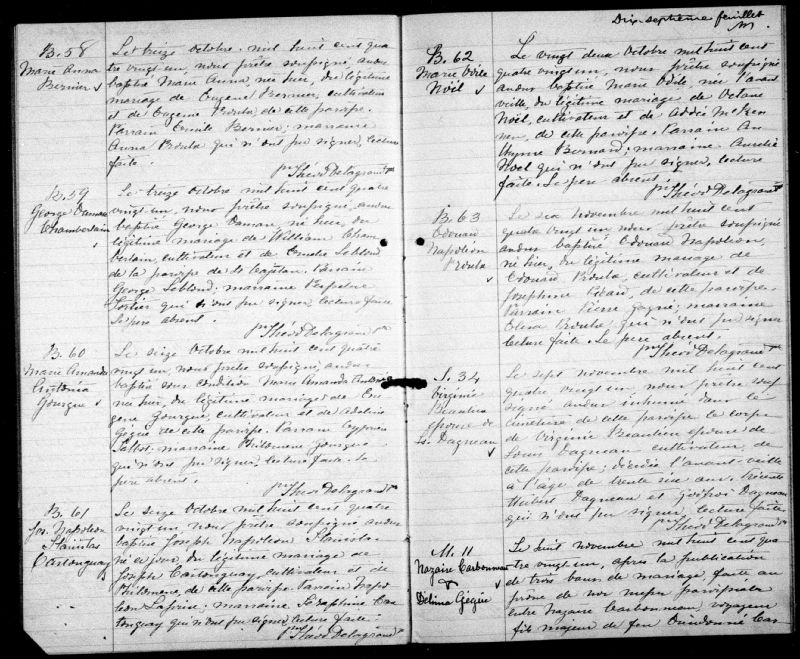 B. 58
Marie Anna
Bernier
Le treize Octobre mil huit cent qua
tre vingt un, nous prêtre soussigné, avons
baptisé Marie Anna, née hier, du légitime
mariage de Eugène Bernier, cultivateur
et de Eugénie Proulx, de cette paroisse.
Parrain Bernier; marraine
Anna Proulx qui n'ont pu signer, lecture
faite.
Théod Delagrave Ptre
B. 59
George
Chamberlain
Le treize Octobre mil huit cent quatre
vingt un, nous prêtre soussigné, avons
baptisé George né hier, du
légitime mariage de William Cham
berlain, cultivateur et de Leblond
de la paroisse de St Cajetan. Parrain
George Leblond; marraine
Fortier qui n'ont pu signer, lecture faite.
Le père absent.
Théod Delagrave Ptre
B. 60
Marie Amanda
Antonia
Gourgue
Le seize Octobre mil huit cent quatre
vingt un, nous prêtre soussigné, avons
baptisé sous condition Marie Amanda Antonia
née hier, du légitime mariage de Eu
gène Gourgue, cultivateur et de Adeline
de cette paroisse. Parrain Cyprien
Talbot marraine Philomène Gourgue
qui n'ont pu signer, lecture faite. Le
père absent.
Théod Delagrave Ptre
B. 61
Jos. Napoléon
Stanislas
Castonguay
Le seize Octobre mil huit cent quatre
vingt un nous prêtre soussigné avons
baptisé Joseph Napoléon Stanislas
né ce jour, du légitime mariage de
Joseph Castonguay, cultivateur et de
Philomène, de cette paroisse. Parrain Napo
léon marraine Séraphine Cas
tonguay qui n'ont pu signer, lecture faite.
Théod Delagrave Ptre
Dix septième feuillet
B. 62
Marie Odile
Noël
Le vingt deux Octobre mil huit cent
quatre vingt un, nous prêtre soussigné
avons baptisé Marie Odile née l'avant
veille, du légitime mariage de Octave
Noël, cultivateur et de
de cette paroisse. Parrain An
thyme Bernard; marraine Aurélie
Noël qui n'ont pu signer, lecture
faite. Le père absent.
Théod Delagrave Ptre
B. 63
Edouard
Napoléon
Proulx
Le six Novembre mil huit cent
quatre vingt un nous prêtre soussigné
avons baptisé Edouard Napoléon,
né hier, du légitime mariage de
Edouard Proulx, cultivateur et de
Josephine de cette paroisse.
Parrain Pierre Gagné; marraine
Proulx, qui n'ont pu signer
lecture faite. Le père absent.
Théod Delagrave Ptre
S. 34
Virginie
Beaulieu
épouse de
Ls. Dagneau
Le sept novembre mil huit cent
quatre vingt un nous prêtre sous
signé avons inhumé dans le
cimetière de cette paroisse le corps
de Virginie Beaulieu épouse de
Louis Dagneau cultivateur, de
cette paroisse; décédée l'avant-veille
à l'âge de trente six ans. Présents
Hubert Dagneau et Dagneau
qui n'ont pu signer, lecture faite.
Théod Delagrave Ptre
M. 11
Nazaire Carbonneau
&
Délima
Le huit novembre mil huit cent qua
tre vingt un, après la publication
de trois bans de mariage, faite au
prône de nos messes paroissiales
entre Nazaire Carbonneau, voyageur
fils majeur de feu Dieudonné Car